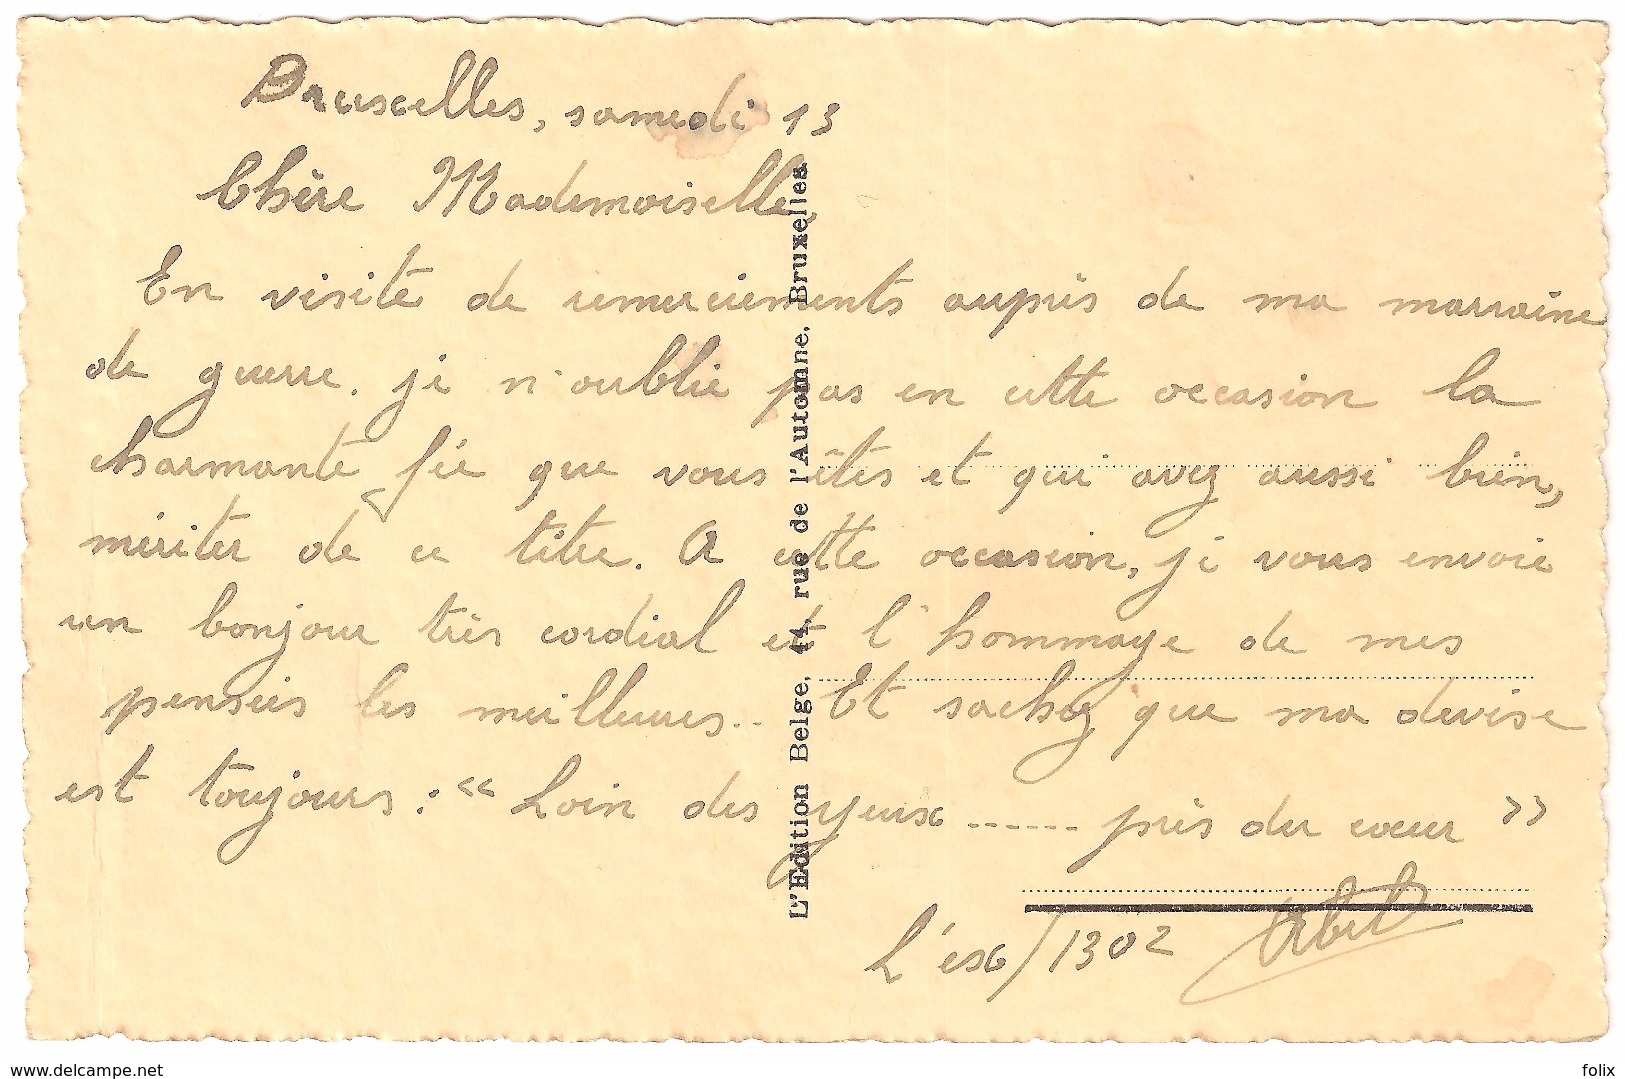 Bruxelles, samedi 13
Chère Mademoiselle,
En visite de remerciements auprès de ma marraine
de guerre. je n'oublie pas en cette occasion la
charmante fée que vous êtes et qui avez aussi bien,
mériter de ce titre. A cette occasion, je vous envoie
un bonjour très cordial et l'hommage de mes
pensées les meilleures.. Et sachez que ma devise
est toujours : « Loin des yeux ...... près du coeur »
L'ex/1302
L'Edition Belge, 44, rue de l'Automne, Bruxelles.
www.delcampe.net
folix